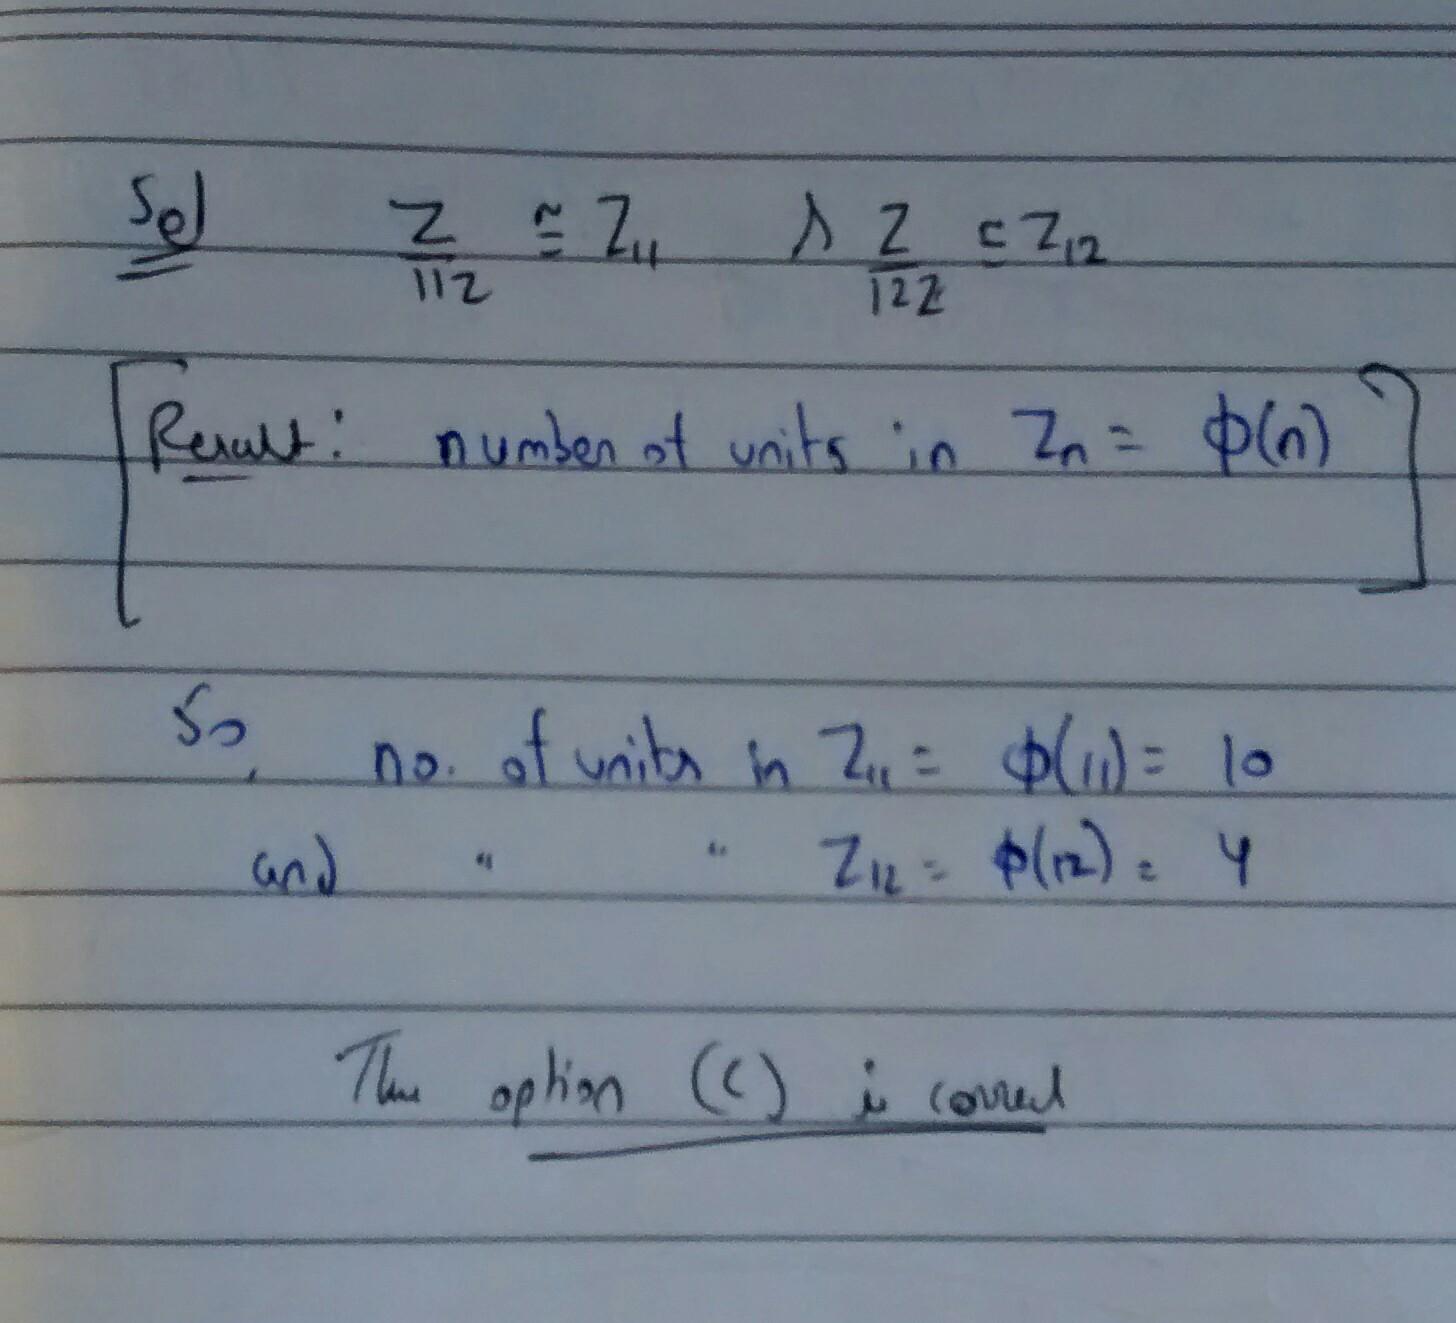 Sol Z/11Z ≅ Z₁₁ & Z/12Z ≅ Z₁₂
Result: number of units in Zn = ϕ(n)
So, no. of units in Z₁₁ = ϕ(11) = 10
and " " Z₁₂ = ϕ(12) = 4
Thus option (C) is correct